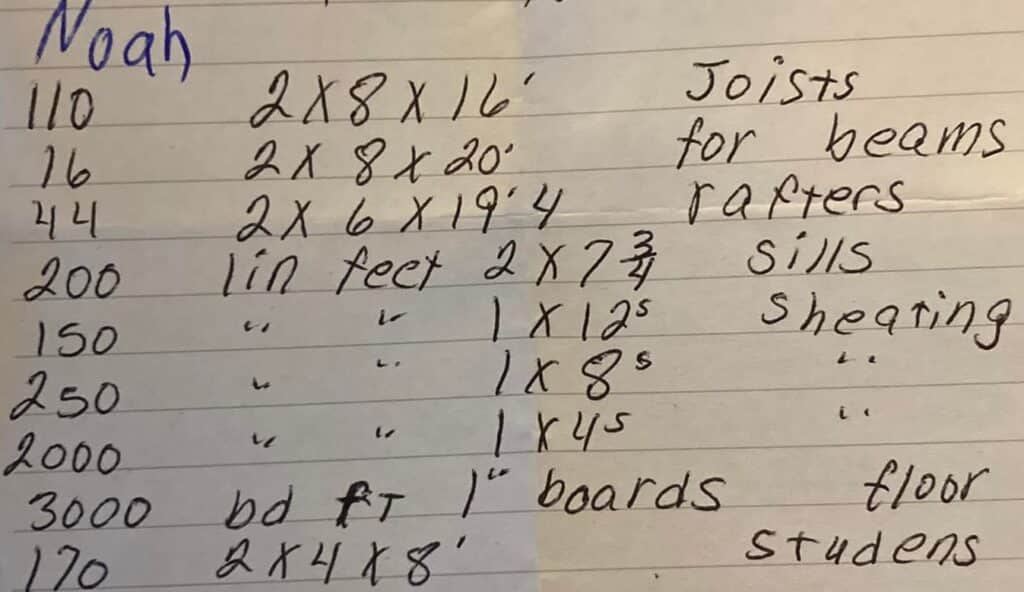 Noah
110 2X8X16' Joists
16 2X8X20' for beams
44 2X6X19'4 rafters
200 lin feet 2X7 3/4 sills
150 " " 1X12s Sheating
250 " " 1X8s " "
2000 " " 1X4s " "
3000 bd fT 1" boards floor
170 2X4X8' studens